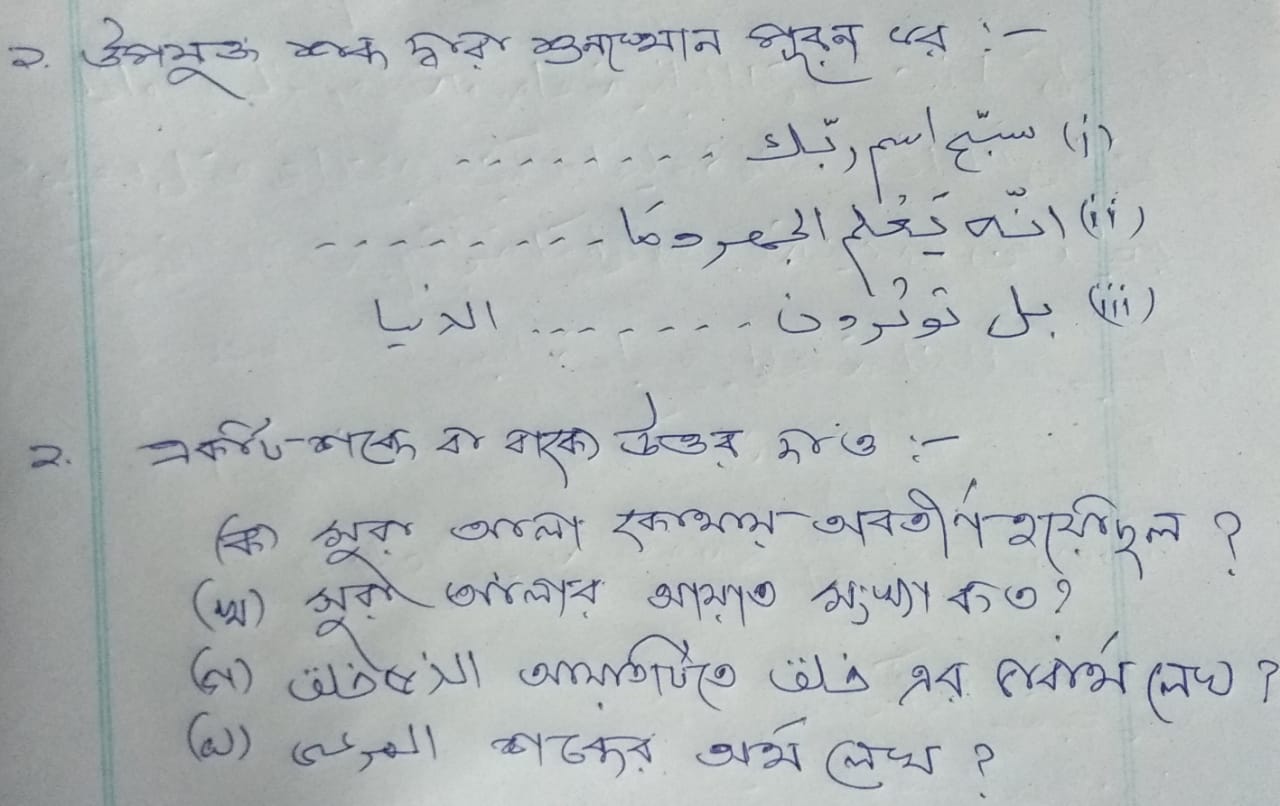 ২. উপযুক্ত শব্দ দ্বারা শুন্যস্থান পূরন কর :-
(i) سبّح اسم ربّك ........
(ii) انّه يَعْلم الجهر ومَا ---------
(iii) بل تؤثرون ------- الدنيا
২. একটি শব্দে বা বাক্যে উত্তর দাও :-
(ক) সুরা আলা কোথায় অবতীর্ণ হয়েছিল ?
(খ) সুরা আলার আয়াত সংখ্যা কত ?
(গ) الذى خلق আয়াতটিতে خلق এর শব্দার্থ লেখ ?
(ঘ) المرعى শব্দের অর্থ লেখ ?